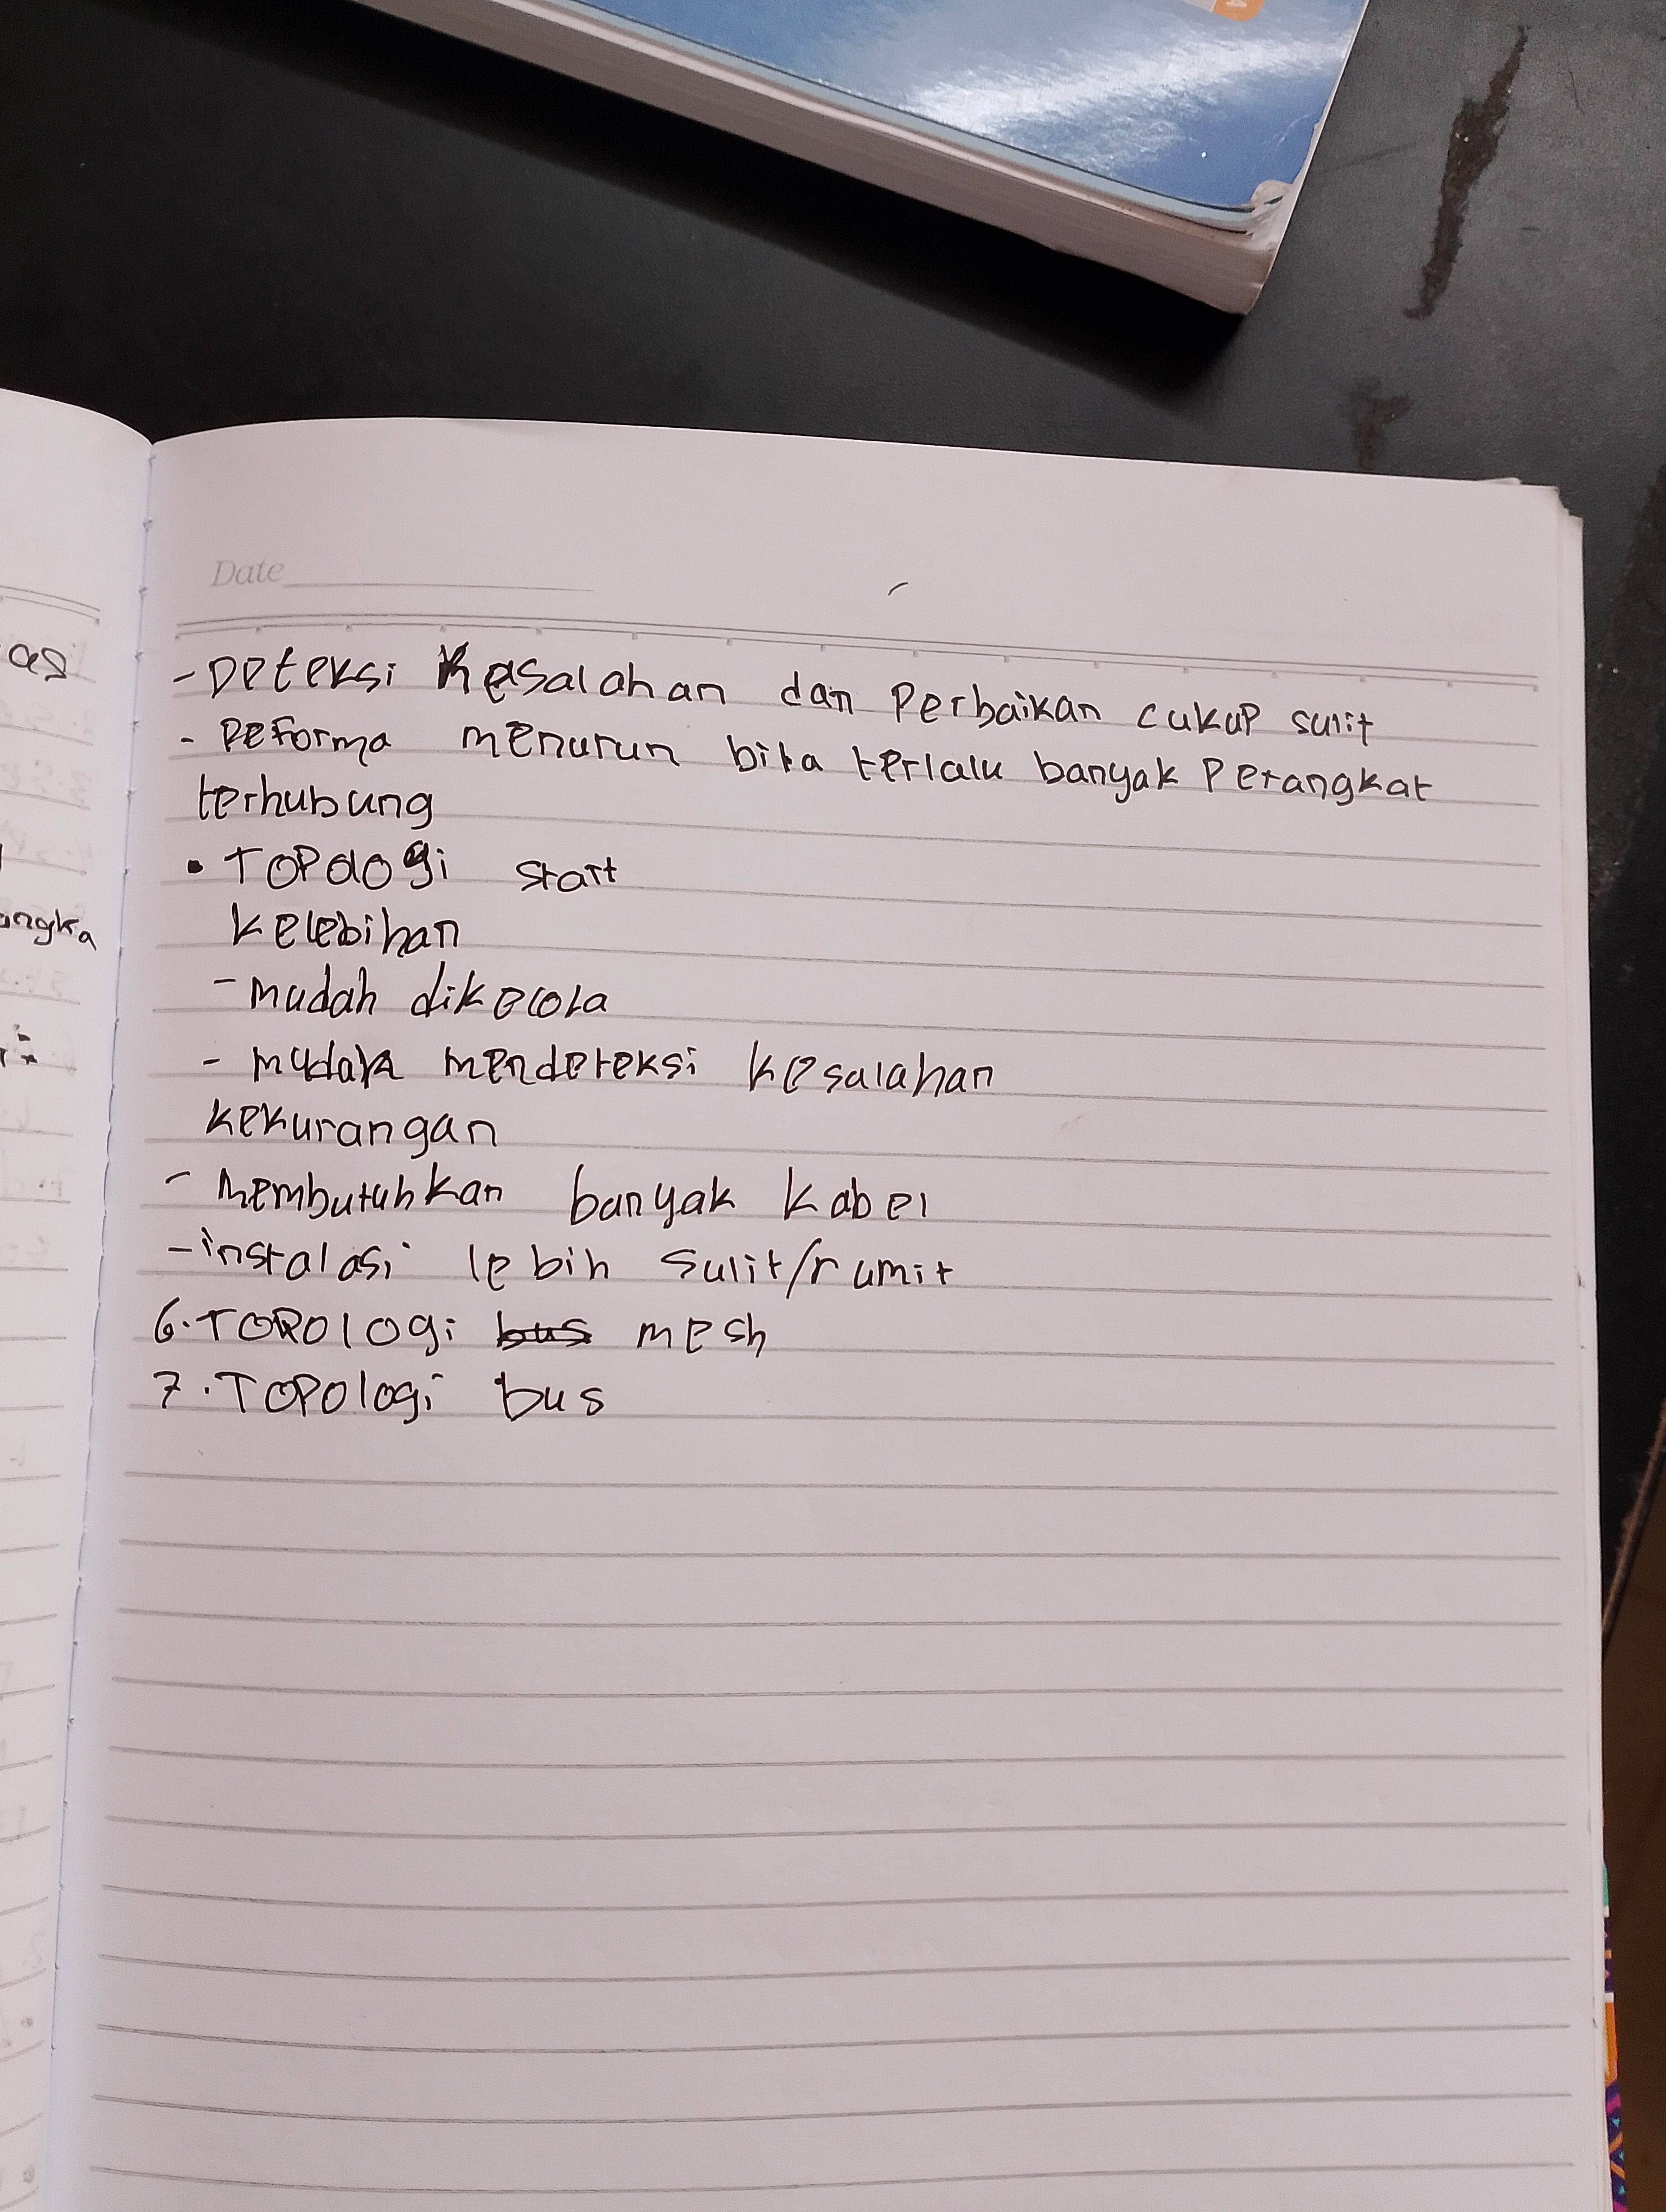 as
angka
Date
- Deteksi Kesalahan dan Perbaikan cukup sulit
- Peforma menurun bila terlalu banyak Perangkat
terhubung
• TOPologi start
kelebihan
- mudah dikelola
- mudah mendeteksi kesalahan
kekurangan
- membutuhkan banyak kabel
- instalasi lebih sulit/rumit
6. TOPologi bus mesh
7. TOPologi bus